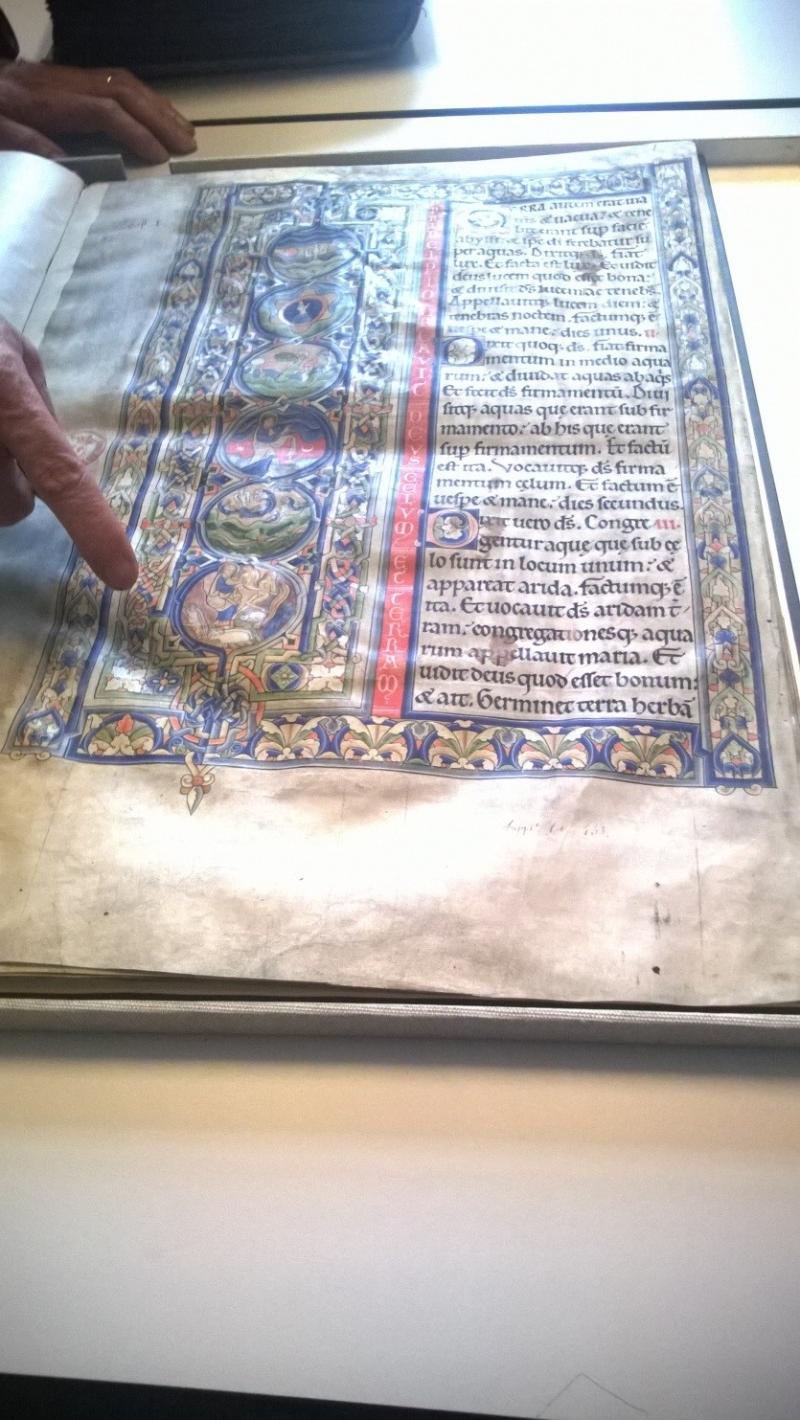 PRINCIPIO CREAVIT DEVS CELVM ET TERRAM
RRA autem erat ina
nis & uacua: & tene
bre erant sup facie
abyssi: & sps di ferebatur su
per aquas. Dixitq; ds. fiat
lux. Et facta est lux. Et uidit
deus lucem quod esset bona:
& diuisit ds lucem ac tenebs.
Appellauitq; lucem diem: &
tenebras noctem. factumq; ē
uespe & mane: dies unus. ii.
Dixit quoq; ds. fiat firma
mentum in medio aqua
rum: & diuidat aquas ab aqs
Et fecit ds firmamentū. Diui
sitq; aquas que erant sub fir
mamento: ab his que erant
sup firmamentum. Et factū
est ita. Vocauitq; ds firma
mentum celum. Et factum ē
uespe & mane: dies secundus.
Dixit uero ds. Congre iii.
gentur aque que sub ce
lo sunt in locum unum: &
appareat arida. factumq; ē
ita. Et uocauit ds aridam t̄
ram: congregationesq; aqua
rum appellauit maria. Et
uidit deus quod esset bonum:
& ait. Germinet terra herbā